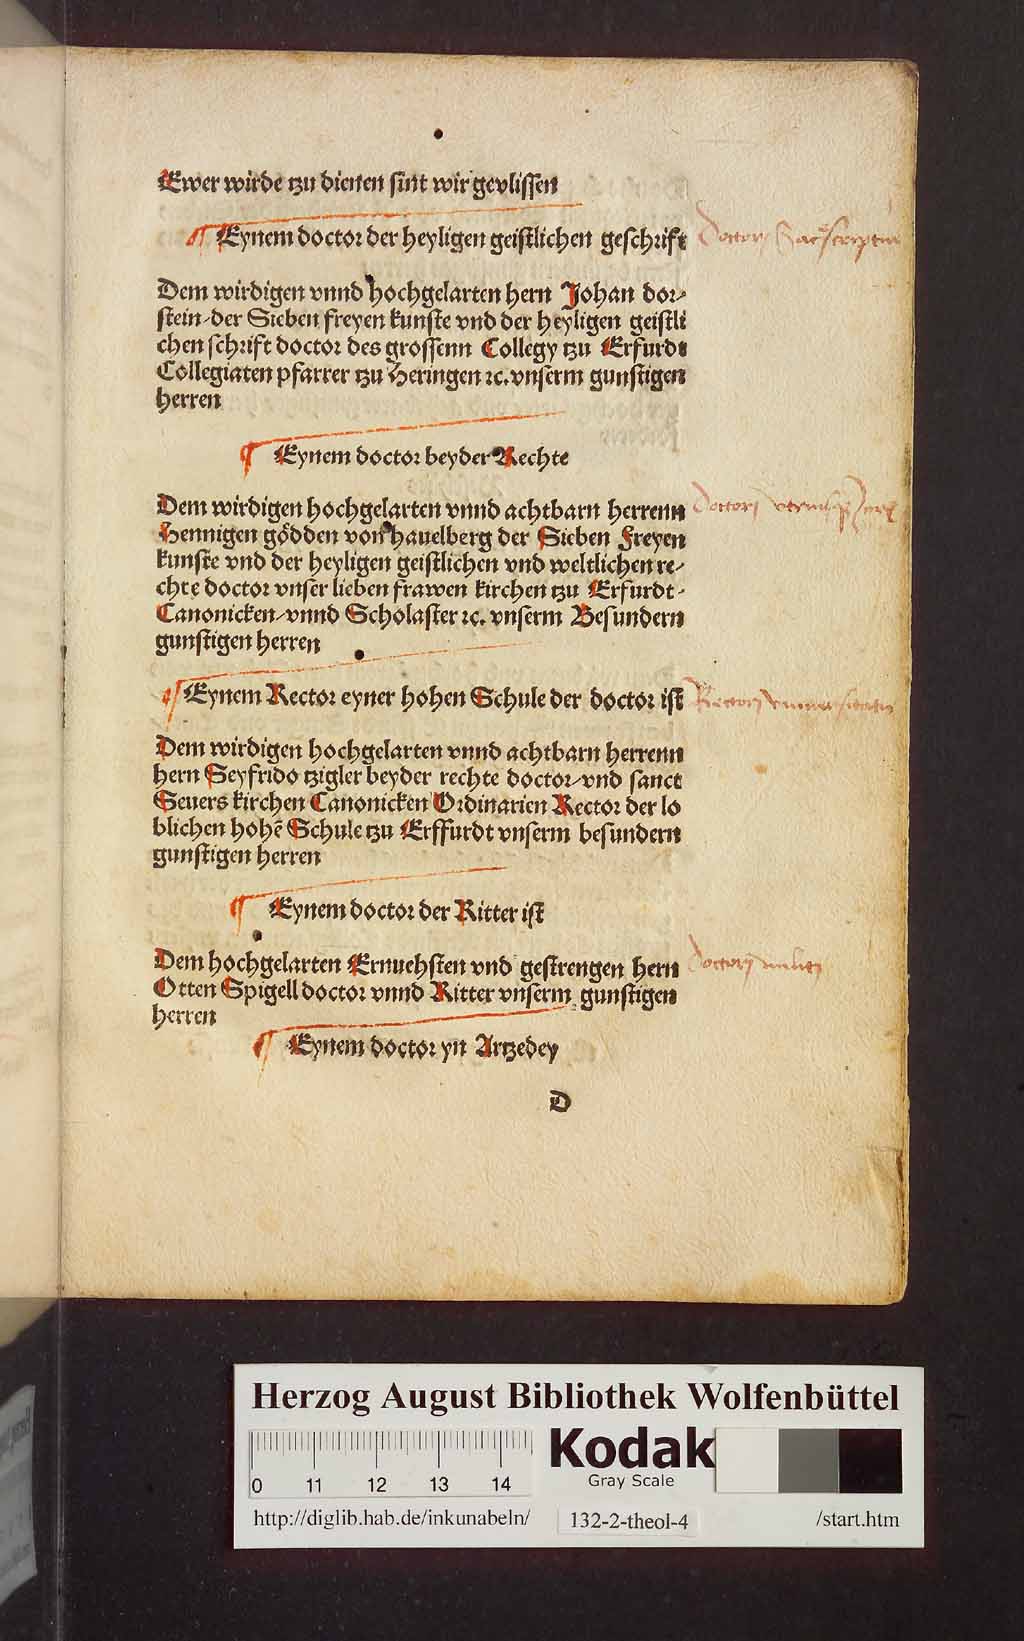 Ewer wirde tzu dienen sint wir gevlissen
¶ Eynem doctor der heyligen geistlichen geschrift
Dem wirdigen vnnd hochgelarten hern Johan dor⸗
stein⸗der Sieben freyen kunste vnd der heyligen geistli
chen schrift doctor des grossenn Collegy tzu Erfurdt
Collegiaten pfarrer tzu Heringen ⁊c. vnserm gunstigen
herren
¶ Eynem doctor beyder Rechte
Dem wirdigen hochgelarten vnnd achtbarn herrenn
Hennigen gödden von hauelberg der Sieben Freyen
kunste vnd der heyligen geistlichen vnd weltlichen re⸗
chte doctor vnser lieben frawen kirchen tzu Erfurdt⸗
Canonicken⸗vnnd Scholaster ⁊c. vnserm Besundern
gunstigen herren
¶ Eynem Rector eyner hohen Schule der doctor ist
Dem wirdigen hochgelarten vnnd achtbarn herrenn
hern Seyfrido tzigler beyder rechte doctor⸗vnd sanct
Seuers kirchen Canonicken Ordinarien Rector der lo
blichen hohē Schule tzu Erffurdt vnserm besundern
gunstigen herren
¶ Eynem doctor der Ritter ist
Dem hochgelarten Ernuehsten vnd gestrengen hern
Otten Spigell doctor vnnd Ritter vnserm gunstigen
herren
¶ Eynem doctor yn Artzedey
D
Doctori
Doctori
Rectori
doctori militi
Herzog August Bibliothek Wolfenbüttel
0 11 12 13 14
Kodak
Gray Scale
http://diglib.hab.de/inkunabeln/ 132-2-theol-4 /start.htm